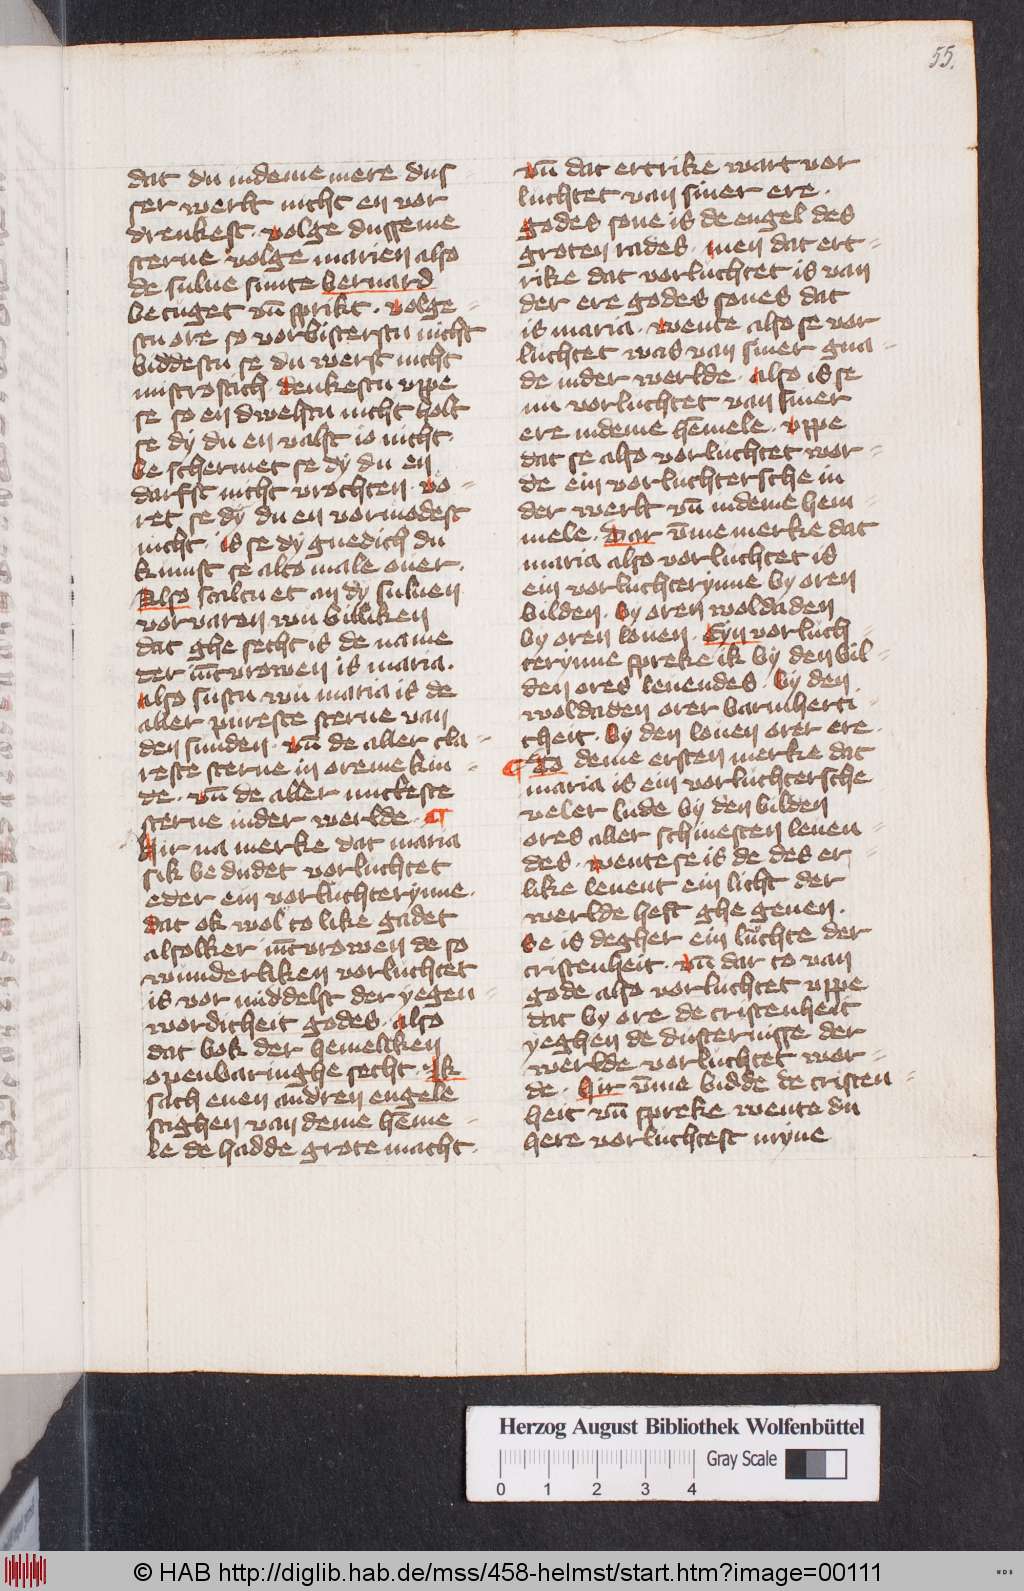 55.
dat du indeme mere dus
ser werlt nicht en vor
drenkest. volge dusseme
sterne volge marien also
de sulue sunte bernard
betuget vn̄ sprikt. volge
stu ore so vorbisterstu nicht
biddestu se du werst nicht
mistrostich denkestu vppe
se so en dwelstu nicht holt
se dy du en valst io nicht
be schermet se dy du en
darfst nicht vrochten. vo
ret se dy du en vormodest
nicht. is se dy gnedich du
kumst se alto male ouer.
Also scaltu et an dy suluen
vorvaren wu billiken
dat ghe secht is de name
der iūcvrowen is maria.
also sustu wu maria is de
aller pureste sterne van
den sunden. vn̄ de aller cla
reste sterne in oreme kin
de. vn̄ de aller nutteste
sterne inder werlde.
hir na merke dat maria
sik be dudet vorluchtet
eder ein vorluchterynne.
dat ok wol to like gadet
alsolker iūcvrowen de so
wunderliken vorluchtet
is vor middelst der yegen
wordicheit godes. also
dat bok der hemelken
openbaringhe secht. Ik
sach enen andren engele
stighen van deme heme
le de hadde grote macht.
vn̄ dat ertrike wart vor
luchtet van siner ere.
godes sone is de engel des
groten rades. men dat ert
rike dat vorluchtet is van
der ere godes sones dat
is maria. wente also se vor
luchtet was van siner gna
de inder werlde. also is se
nu vorluchtet van siner
ere indeme hemele. vppe
dat se also vorluchtet wor
de ein vorluchtersche in
der werlt vn̄ indeme hem
mele. Dar v̄me merke dat
maria also vorluchtet is
ein vorluchterynne by oren
bilden. by oren woldaden
by oren louen. Eyn vorluch
terynne spreke ik by den bil
den ores leuendes. by den
woldaden orer barmherti
cheit. by den louen orer ere.
To deme ersten merke dat
maria is ein vorluchtersche
veler lude by den bilden
ores aller schinesten leuen
des. wente se is de des er
like leuent ein licht der
werlde heft ghe geuen.
Se is degher ein luchte der
cristenheit. vn̄ dar to van
gode also vorluchtet vppe
dat by ore de cristenheit
yeghen de dusternisse der
werlde vorluchtet wor
de. hir v̄me bidde de cristen
heit vn̄ spreke wente du
here vorluchtest myne
Herzog August Bibliothek Wolfenbüttel
Gray Scale
0 1 2 3 4
© HAB http://diglib.hab.de/mss/458-helmst/start.htm?image=00111